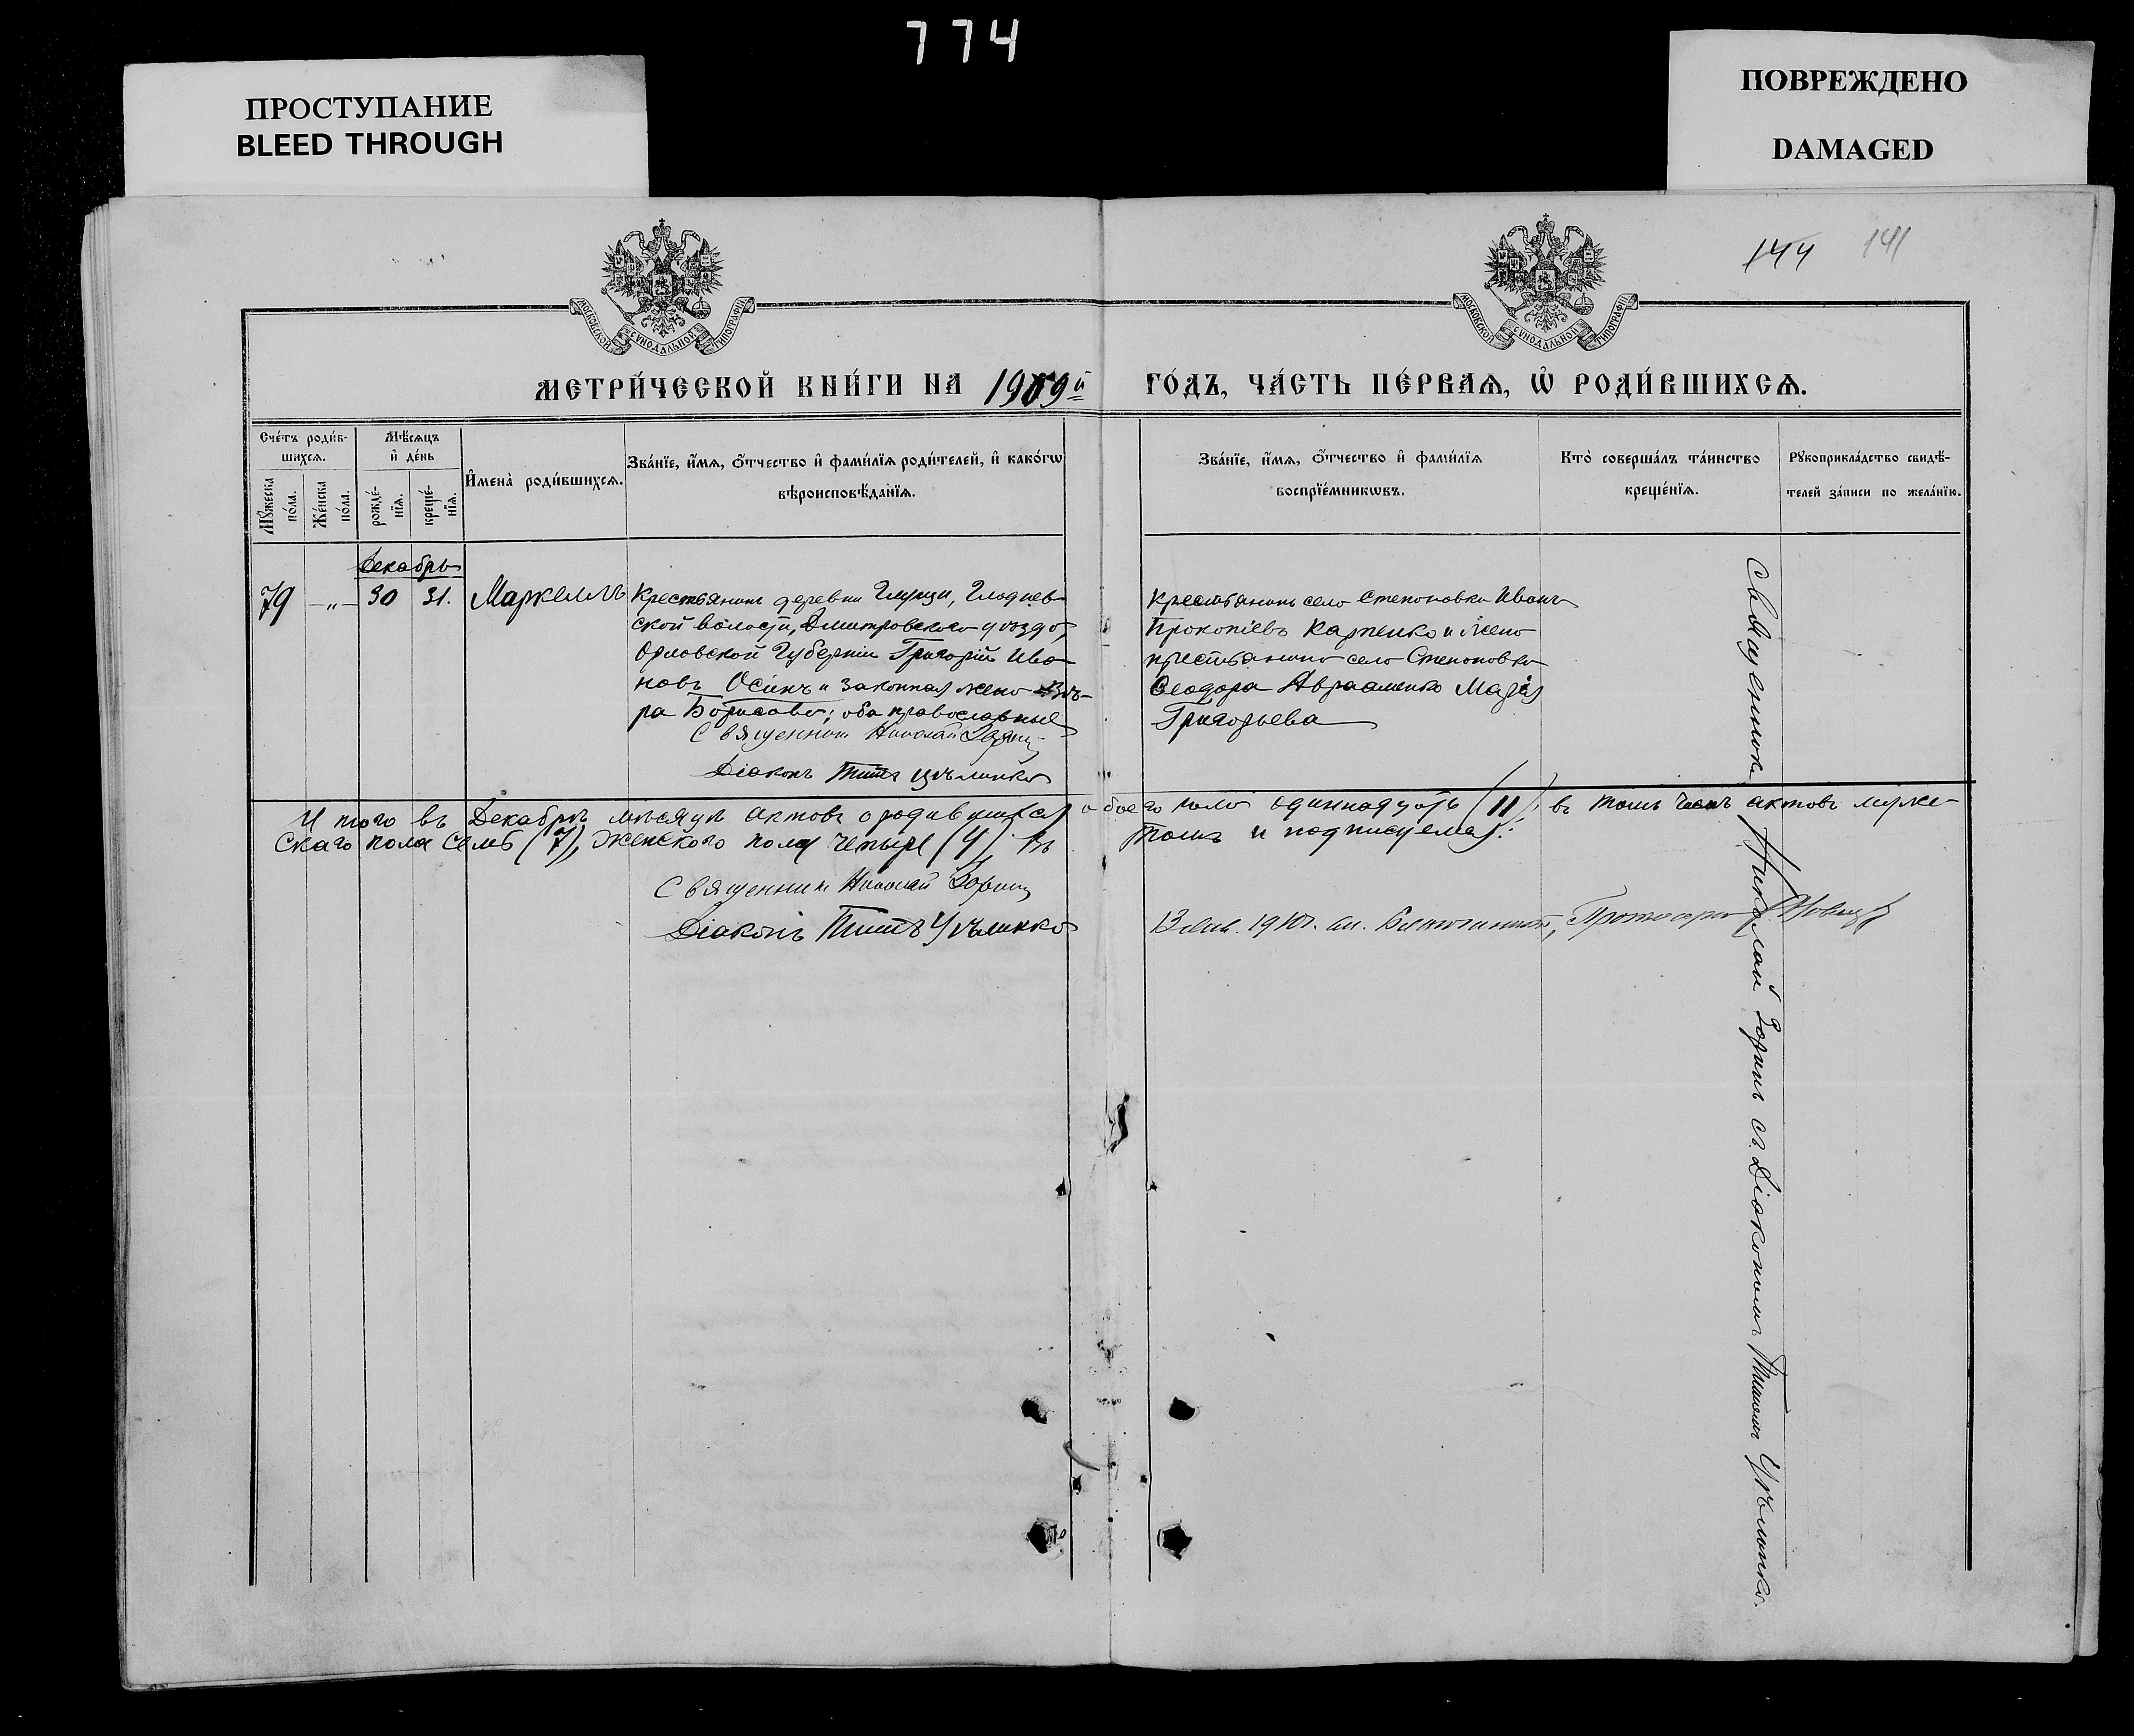 774
ПРОСТУПАНИЕ
BLEED THROUGH
ПОВРЕЖДЕНО
DAMAGED
144 141
МОСКОВСКОЙ СѴНОДАЛЬНОЙ ТИПОГРАФІИ
МОСКОВСКОЙ СѴНОДАЛЬНОЙ ТИПОГРАФІИ
МЕТРИ́ЧЕСКОЙ КНИ́ГИ НА 1909й ГО́ДЪ, ЧА́СТЬ ПЕ́РВАѦ, Ѡ҆ РОДИ́ВШИХСѦ.
Сче́тъ роди́в-
шихсѧ.
Мꙋ́жеска
по́ла.
Же́нска
по́ла.
Мѣ́сѧцъ
и҆ де́нь
рожде́-
нїѧ.
креще́-
нїѧ.
И҆мена̀ роди́вшихсѧ.
Зва́нїе, и҆́мѧ, ѻ҆́тчество и҆ фами́лїѧ роди́телей, и҆ како́гѡ
вѣроисповѣ́данїѧ.
Зва́нїе, и҆́мѧ, ѻ҆́тчество и҆ фами́лїѧ
воспрїе́мникѡвъ.
Кто̀ соверша́лъ та́инство
креще́нїѧ.
Рꙋкоприкла́дство свидѣ́-
телей за́писи по жела́нїю.
Декабрь
79 -„- 30 31. Маркеллъ
Крестьянинъ деревни
ской волости, Дмитровскаго уѣзда,
Орловской Губерніи Григорій Ива-
новъ Осинъ и законная жена Вѣ-
ра Борисова; оба православные
Священникъ Николай Зоринъ
Діаконъ Титъ Цѣлинко
Крестьянинъ села Степановки Иванъ
Прокопіевъ Карпенко и жена
крестьянина села Степановки
Ѳеодора Авраменко Марія
Григорьева
Священникъ Николай Зоринъ съ Діакономъ Титомъ Цѣлинко.
Итого въ Декабрѣ мѣсяцѣ актовъ о родившихся обоего пола одиннадцать (11), въ томъ числѣ актовъ муже-
скаго пола семь (7), женскаго пола четыре (4). Въ томъ и подписуемся:
Священникъ Николай Зоринъ
Діаконъ Титъ Цѣлинко
13 Янв. 1910 г. Благочинный, Протоіерей